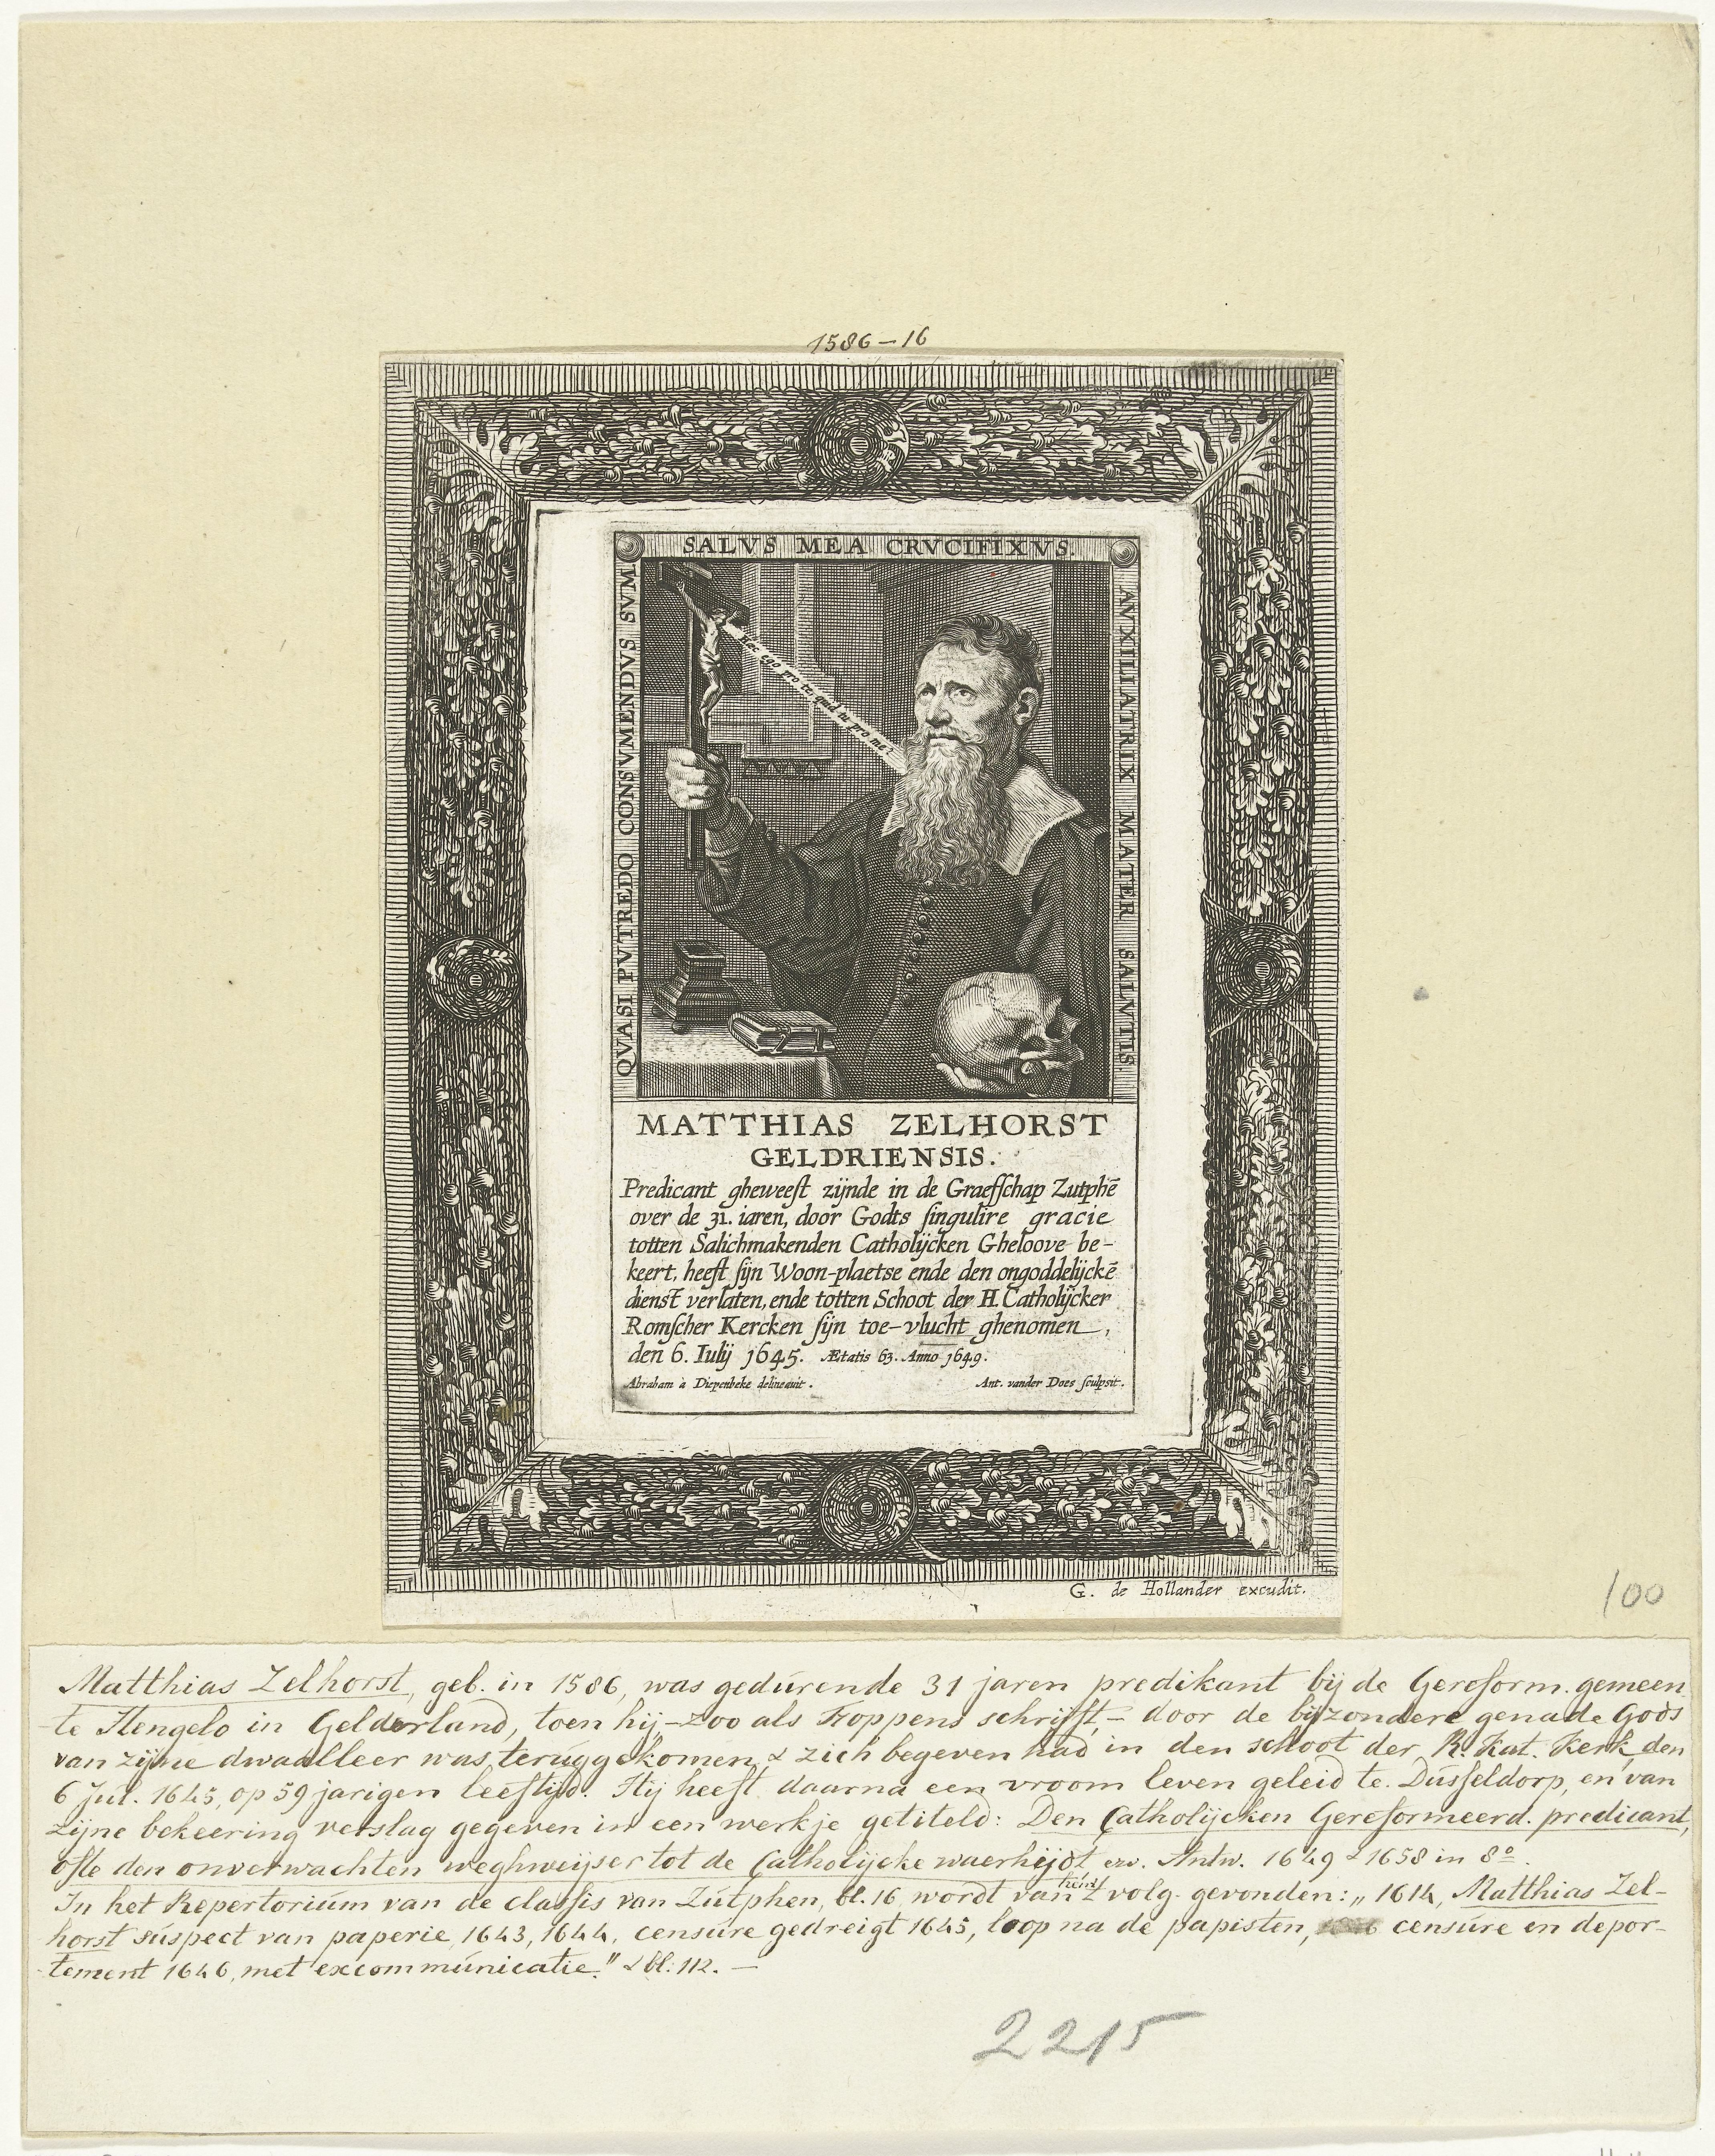 1586-16
SALVS MEA CRVCIFIXVS.
QVASI PVTREDO CONSVMENDVS SVM
AVXILIATRIX MATER SALVTIS
Hæc ego pro te; quid tu pro me?
MATTHIAS ZELHORST
GELDRIENSIS.
Predicant gheweeſt zijnde in de Graefſchap Zutphē
over de 31. iaren, door Godts ſingulire gracie
totten Salichmakenden Catholijcken Gheloove be-
keert, heeft ſijn Woon-plaetse ende den ongoddelijckē
dienst verlaten, ende totten Schoot der H. Catholijcker
Romſcher Kercken ſijn toe-vlucht ghenomen,
den 6. Iulij 1645. Ætatis 63. Anno 1649.
Abraham à Diepenbeke delineavit. Ant. vander Does ſculpsit.
G. de Hollander excudit.
100
Matthias Zelhorst, geb. in 1586, was gedurende 31 jaren predikant bij de Gereform. gemeen
te Hengelo in Gelderland, toen hij - zoo als Foppens schrijft, - door de bijzondere genade Gods
van zijne dwaalleer was teruggekomen, & zich begeven had in den schoot der R. Kat. Kerk den
6 Jul. 1645, op 59 jarigen leeftijd. Hij heeft daarna een vroom leven geleid te Dusseldorp, en van
zijne bekeering verslag gegeven in een werkje getiteld: Den Catholijcken Gereformeerd. predicant,
ofte den onverwachten weghweijser tot de Catholijcke waerheijdt, enz. Antw. 1649 & 1658 in 8º.
In het Repertorium van de classis van Zutphen, bl. 16 wordt van hem 't volg. gevonden: „1614, Matthias Zel-
horst suspect van paperie, 1643, 1644, censure gedreigt 1645, loop na de papisten, censure en depor-
tement 1646, met excommunicatie." & bl. 112. —
2215